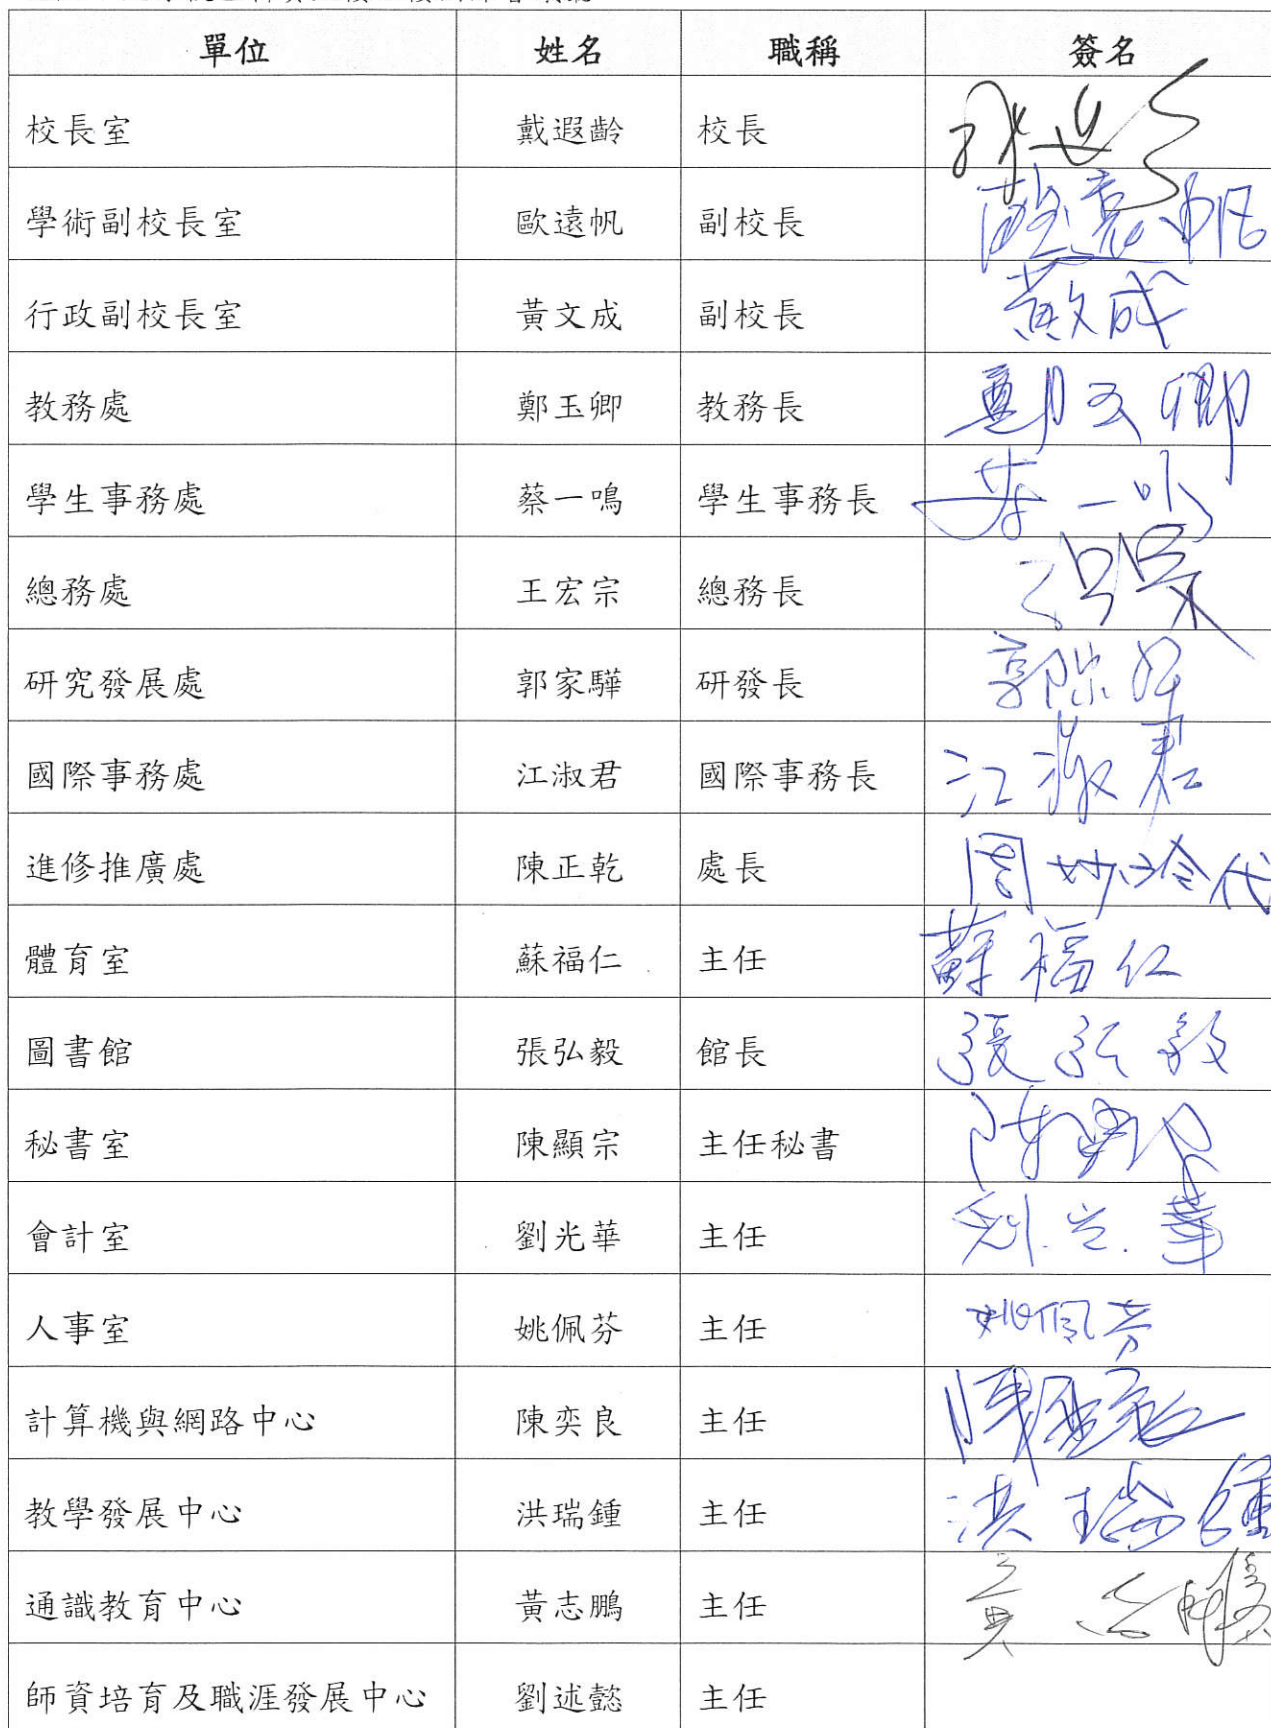 單位 姓名 職稱 簽名
校長室 戴遐齡 校長
學術副校長室 歐遠帆 副校長 歐遠帆
行政副校長室 黃文成 副校長 黃文成
教務處 鄭玉卿 教務長 鄭玉卿
學生事務處 蔡一鳴 學生事務長 蔡一鳴
總務處 王宏宗 總務長
研究發展處 郭家驊 研發長 郭家驊
國際事務處 江淑君 國際事務長 江淑君
進修推廣處 陳正乾 處長 周妙玲代
體育室 蘇福仁 主任 蘇福仁
圖書館 張弘毅 館長 張弘毅
秘書室 陳顯宗 主任秘書 陳顯宗
會計室 劉光華 主任 劉光華
人事室 姚佩芬 主任 姚佩芬
計算機與網路中心 陳奕良 主任 陳奕良
教學發展中心 洪瑞鍾 主任 洪瑞鍾
通識教育中心 黃志鵬 主任 黃志鵬
師資培育及職涯發展中心 劉述懿 主任